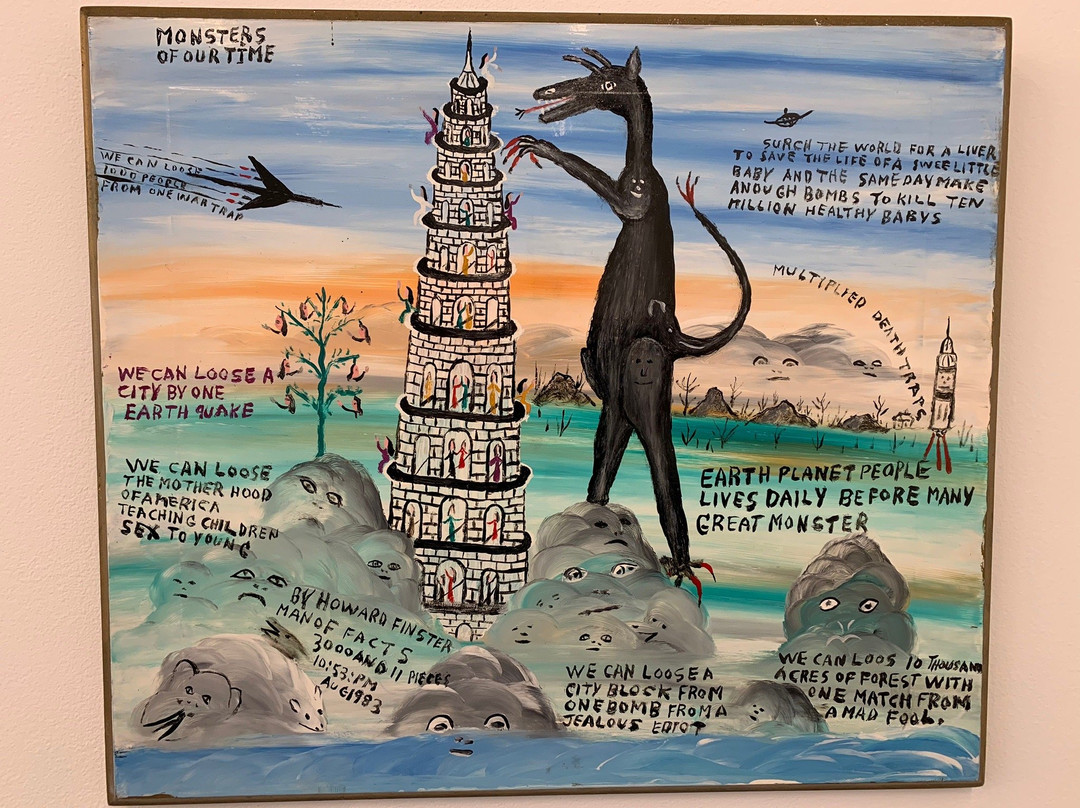 MONSTERS
OF OUR TIME
WE CAN LOOSE
1000 PEOPLE
FROM ONE WAR TRAP
SURCH THE WORLD FOR A LIVER
TO SAVE THE LIFE OF A SWEE LITTLE
BABY AND THE SAME DAY MAKE
ANOUGH BOMBS TO KILL TEN
MILLION HEALTHY BABYS
MULTYPLYED DEATH TRAPS
WE CAN LOOSE A
CITY BY ONE
EARTH QUAKE
WE CAN LOOSE
THE MOTHER HOOD
OF AMERICA
TEACHING CHILDREN
SEX TO YOUNG
EARTH PLANET PEOPLE
LIVES DAILY BEFORE MANY
GREAT MONSTER
BY HOWARD FINSTER
MAN OF FACTS
3000 AND 11 PIECES
10:53:PM
AUG 1983
WE CAN LOOSE A
CITY BLOCK FROM
ONE BOMB FROM A
JEALOUS EDIOT
WE CAN LOOS 10 THOUSAND
ACRES OF FOREST WITH
ONE MATCH FROM
A MAD FOOL.